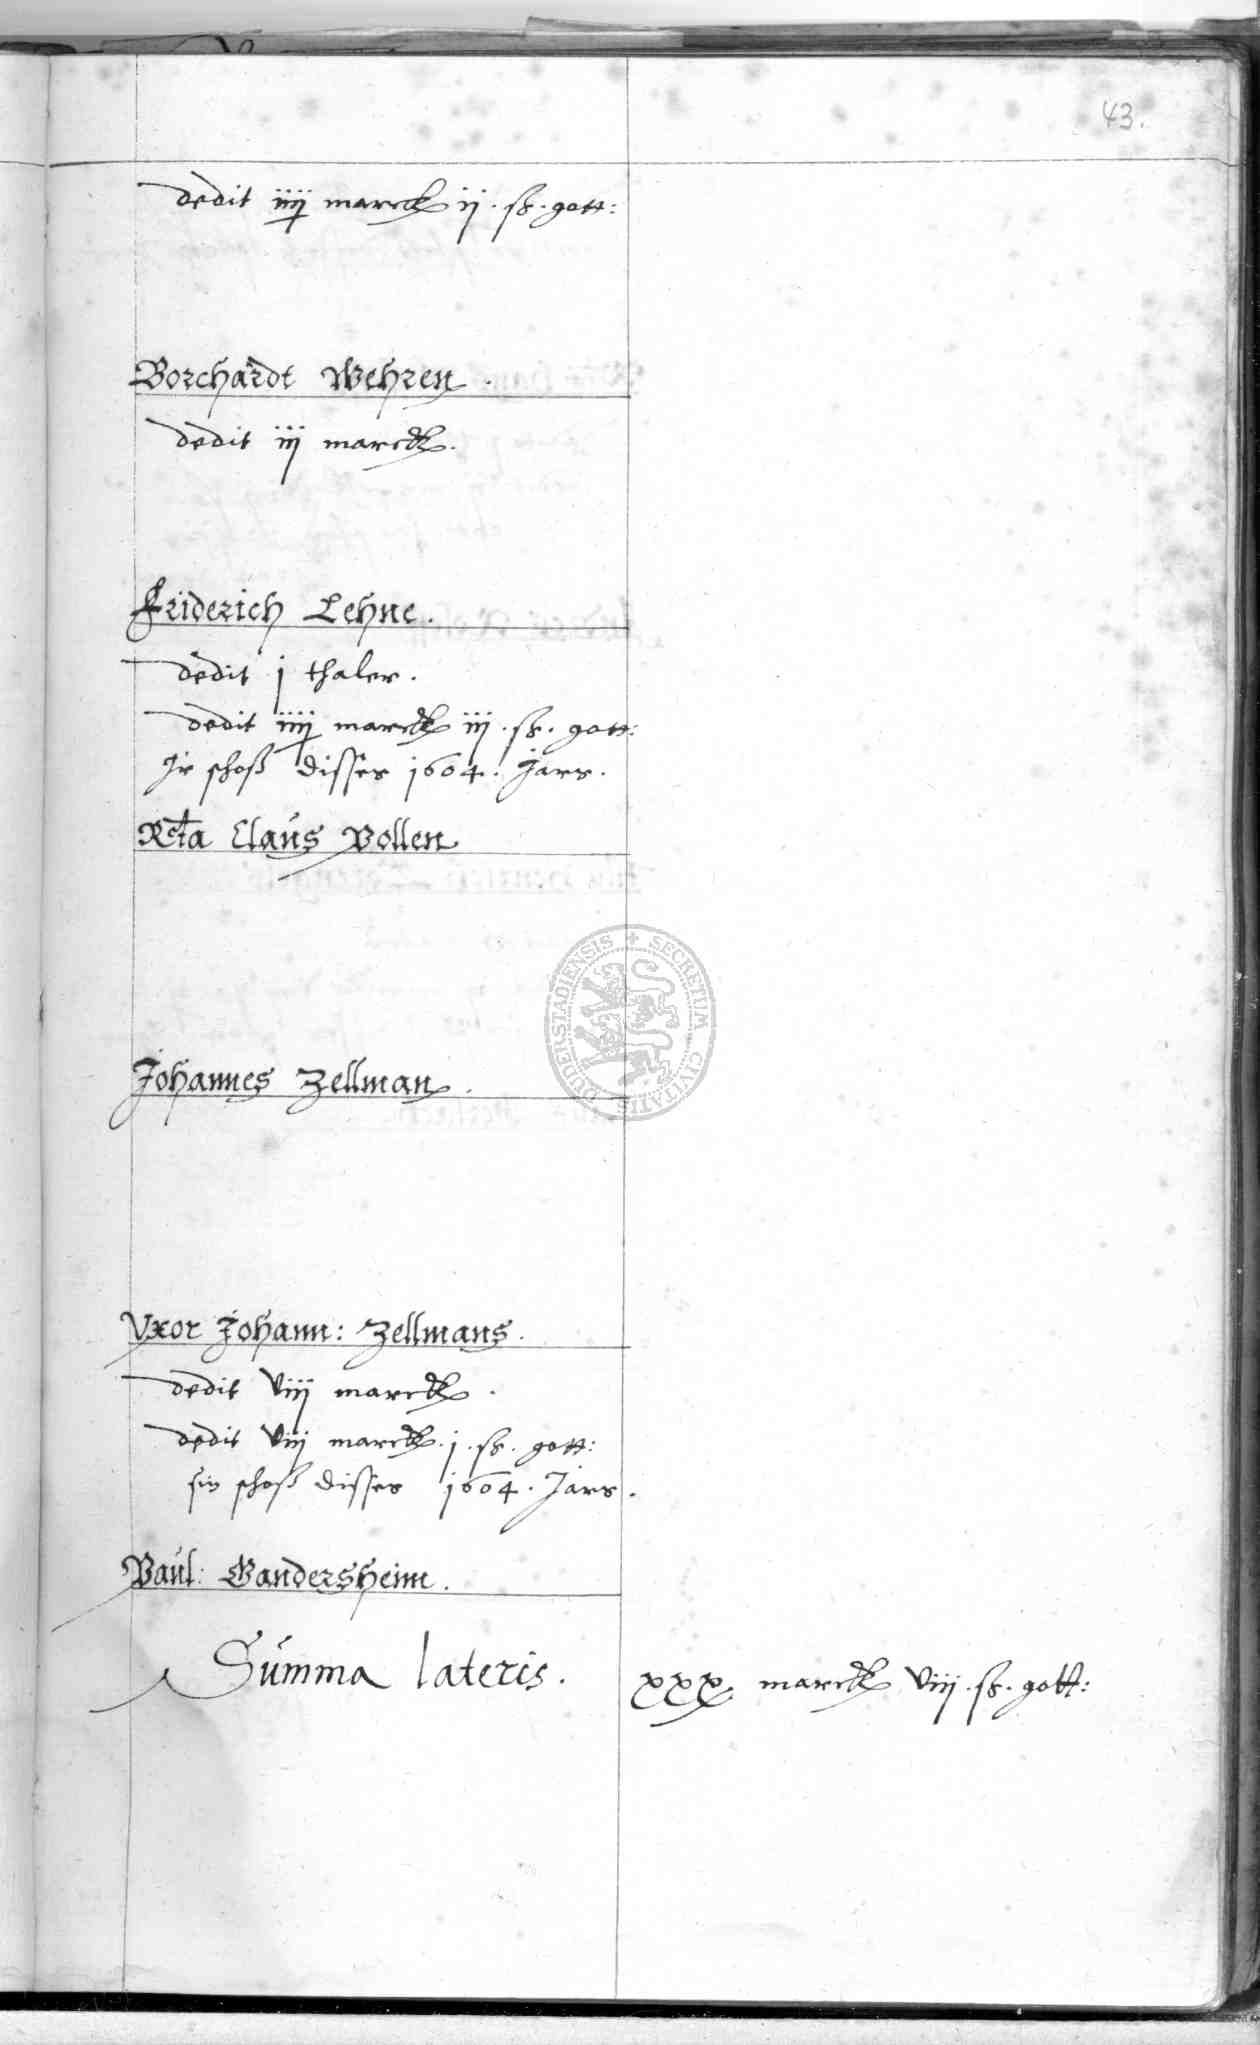 43.
dedit iiij marck ij. ß. gott:
Borchardt Wehren.
dedit iij marck.
Friderich Lehne.
dedit j thaler.
dedit iiij marck iij. ß. gott:
Jr schoß disses 1604. Jars.
Rcta Claus Pollen
Johannes Zellman.
Vxor Johann: Zellmans.
dedit viij marck.
dedit viij marck. j. ß. gott:
sin schoß disses 1604. Jars.
Paul: Gandersheim.
Summa lateris. xxx marck viij. ß. gott:
SECRETUM CIVITATIS DUDERSTADIENSIS